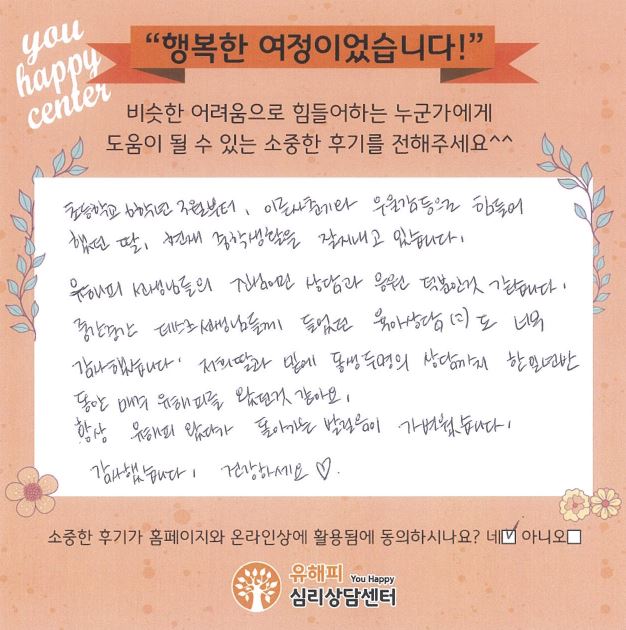 you
happy
center
“행복한 여정이었습니다!”
비슷한 어려움으로 힘들어하는 누군가에게
도움이 될 수 있는 소중한 후기를 전해주세요^^
초등학교 6학년 초부터, 이른사춘기와 우울감등으로 힘들어
했던 딸, 현재 중학생활을 잘지내고 있습니다.
유해피 선생님들의 진심어린 상담과 응원 덕분인것 같습니다.
중간중간 선생님들께 들었던 육아상담(?)도 너무
감사했습니다. 저희딸과 밑에 동생두명의 상담까지 한 일년반
동안 매주 유해피를 왔던것 같아요.
항상 유해피 왔다가 돌아가는 발걸음이 가벼웠습니다.
감사했습니다. 건강하세요 ♡.
소중한 후기가 홈페이지와 온라인상에 활용됨에 동의하시나요? 네☑ 아니오□
유해피 You Happy
심리상담센터